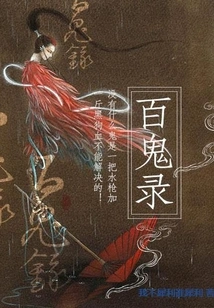 百鬼录
没有什么事是一把水枪加
斤黑狗血不能解决的！
鬼錄
鬼錄